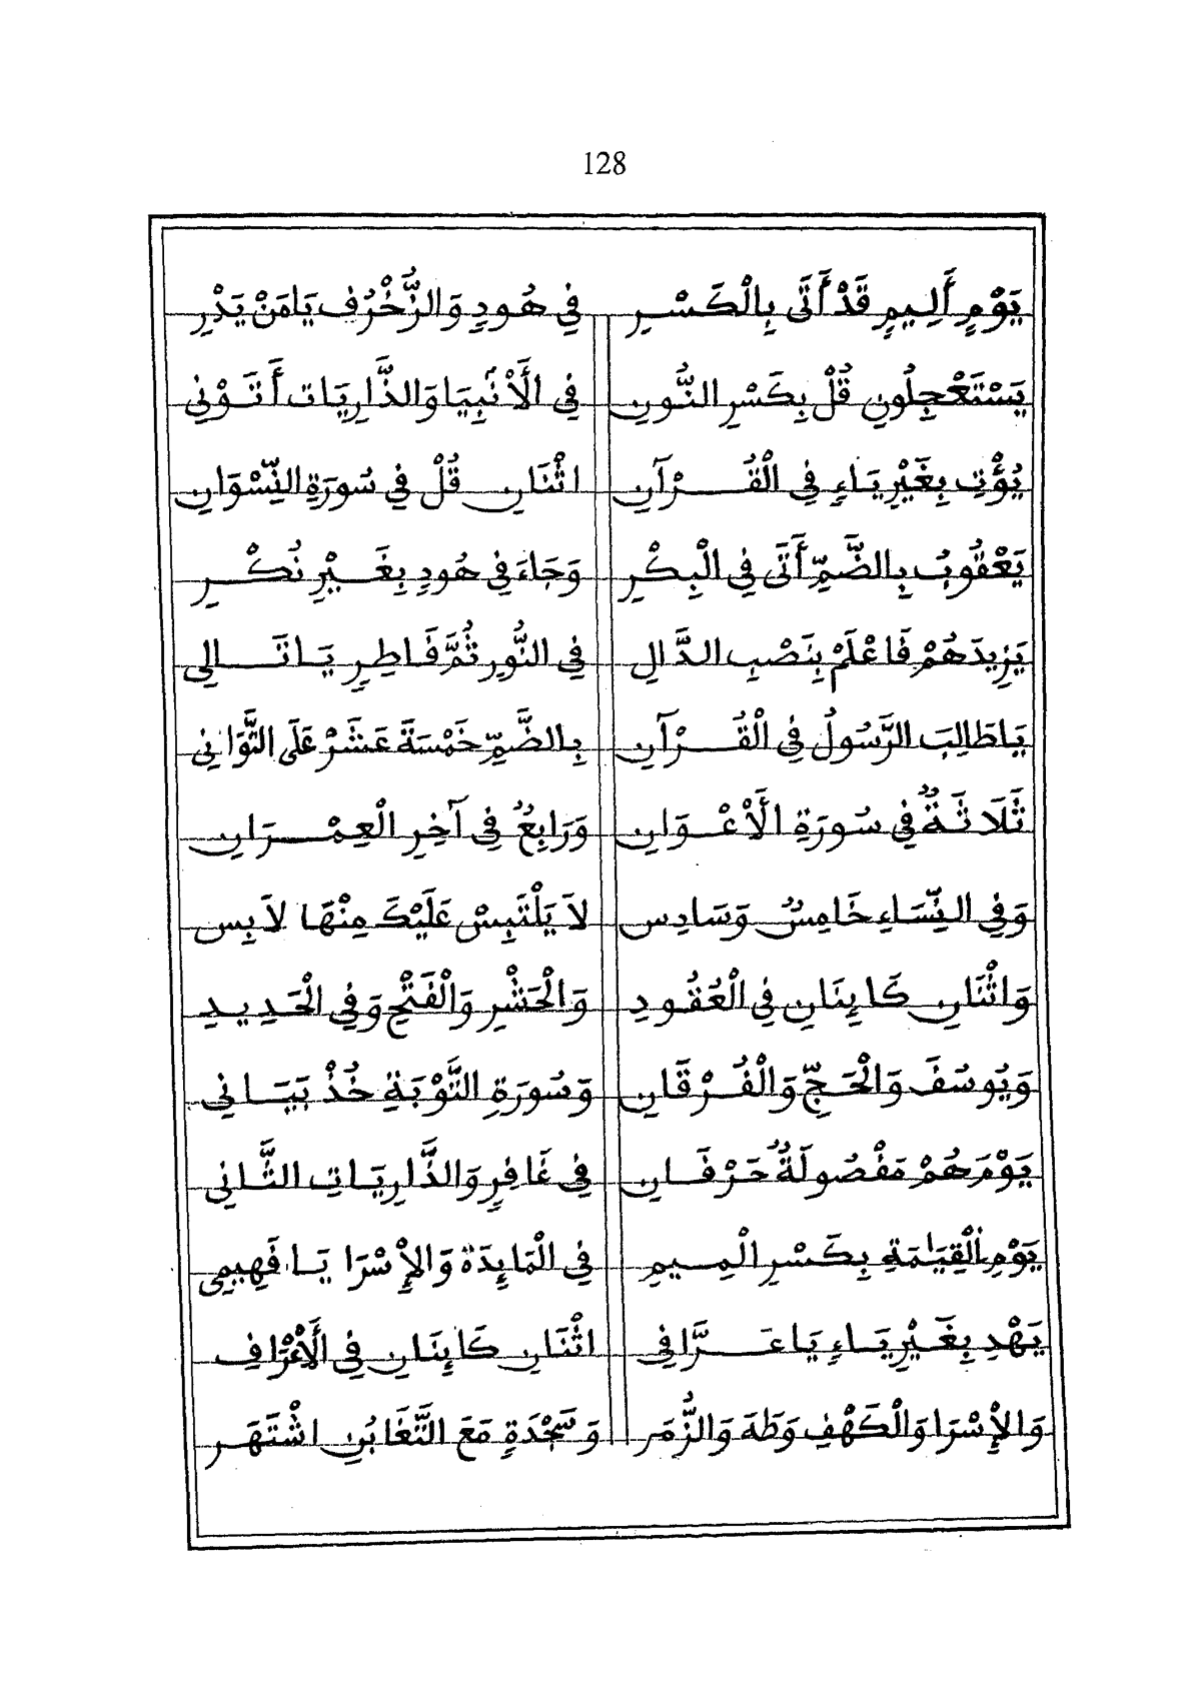 128
يَوْمٍ أَلِيمٍ قَدْ أَتَى بِالْكَسْرِ فِي هُودٍ وَالزُّخْرُفِ يَامَنْ يَدْرِ
يَسْتَعْجِلُونِ قُلْ بِكَسْرِ النُّونِ فِي الْأَنْبِيَا وَالذَّارِيَاتِ أَتَوْنِي
يُؤْتِ بِغَيْرِ يَاءٍ فِي الْقُرْآنِ اثْنَانِ قُلْ فِي سُورَةِ النِّسْوَانِ
يَعْقُوبُ بِالضَّمِّ أَتَى فِي الْبِكْرِ وَجَاءَ فِي هُودٍ بِغَيْرِ نُكْرِ
يَزِيدَهُمْ فَاعْلَمْ بِنَصْبِ الدَّالِ فِي النُّورِ ثُمَّ فَاطِرٍ يَا تَالِي
يَاطَالِبَ الرَّسُولُ فِي الْقُرْآنِ بِالضَّمِّ خَمْسَةَ عَشَرْ عَلَى التَّوَانِي
ثَلَاثَةٌ فِي سُورَةِ الْأَعْوَانِ وَرَابِعٌ فِي آخِرِ الْعِمْرَانِ
وَفِي النِّسَاءِ خَامِسٌ وَسَادِس لَا يَلْتَبِسْ عَلَيْكَ مِنْهَا لَابِس
وَاثْنَانِ كَائِنَانِ فِي الْعُقُودِ وَالْحَشْرِ وَالْفَتْحِ وَفِي الْحَدِيدِ
وَيُوسُفَ وَالْحَجِّ وَالْفُرْقَانِ وَسُورَةِ التَّوْبَةِ خُذْ بَيَانِي
يَوْمَ هُمْ مَفْصُولَةٌ حَرْفَانِ فِي غَافِرٍ وَالذَّارِيَاتِ الثَّانِي
يَوْمِ الْقِيَٰمَةِ بِكَسْرِ الْمِيمِ فِي الْمَائِدَة وَالْإِسْرَا يَا فَهِيمِي
يَهْدِ بِغَيْرِ يَاءٍ يَا عَرَّافِي اثْنَانِ كَائِنَانِ فِي الْأَعْرَافِ
وَالْإِسْرَا وَالْكَهْفِ وَطَهَ وَالزُّمَر وَسَجْدَةٍ مَعَ التَّغَابُنِ اشْتَهَر